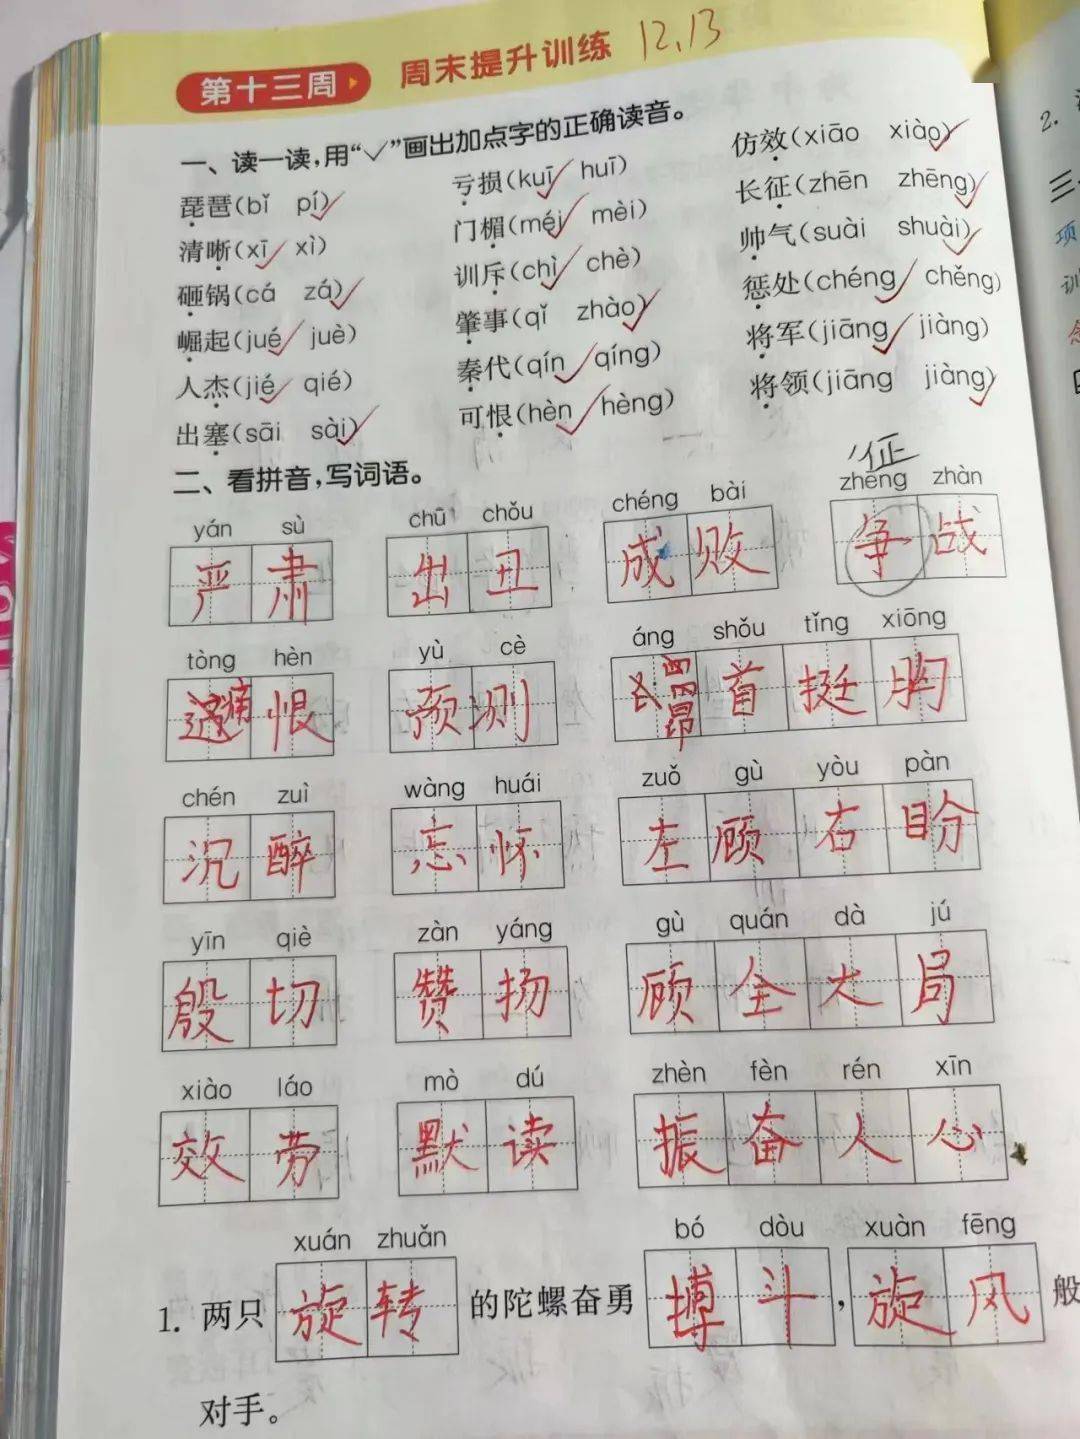 第十三周 周末提升训练 12.13
一、读一读,用“✓”画出加点字的正确读音。
琵琶(bǐ pí)✓ 亏损(kuī✓ huī) 仿效(xiāo xiào)✓
清晰(xī✓ xì) 门楣(méi✓ mèi) 长征(zhēn zhēng)✓
砸锅(cá zá)✓ 训斥(chì✓ chè) 帅气(suài shuài)✓
崛起(jué✓ juè) 肇事(qǐ zhào)✓ 惩处(chéng✓ chěng)
人杰(jié✓ qié) 秦代(qín✓ qíng) 将军(jiāng✓ jiàng)
出塞(sāi sài)✓ 可恨(hèn✓ hèng) 将领(jiāng jiàng)✓
二、看拼音,写词语。
征
yán sù chū chǒu chéng bài zhēng zhàn
严肃 出丑 成败 争战
tòng hèn yù cè áng shǒu tǐng xiōng
痛恨 预测 昂首挺胸
chén zuì wàng huái zuǒ gù yòu pàn
沉醉 忘怀 左顾右盼
yīn qiè zàn yáng gù quán dà jú
殷切 赞扬 顾全大局
xiào láo mò dú zhèn fèn rén xīn
效劳 默读 振奋人心
xuán zhuǎn bó dòu xuàn fēng
1. 两只旋转的陀螺奋勇搏斗,旋风般
对手。
2.
三
项
训